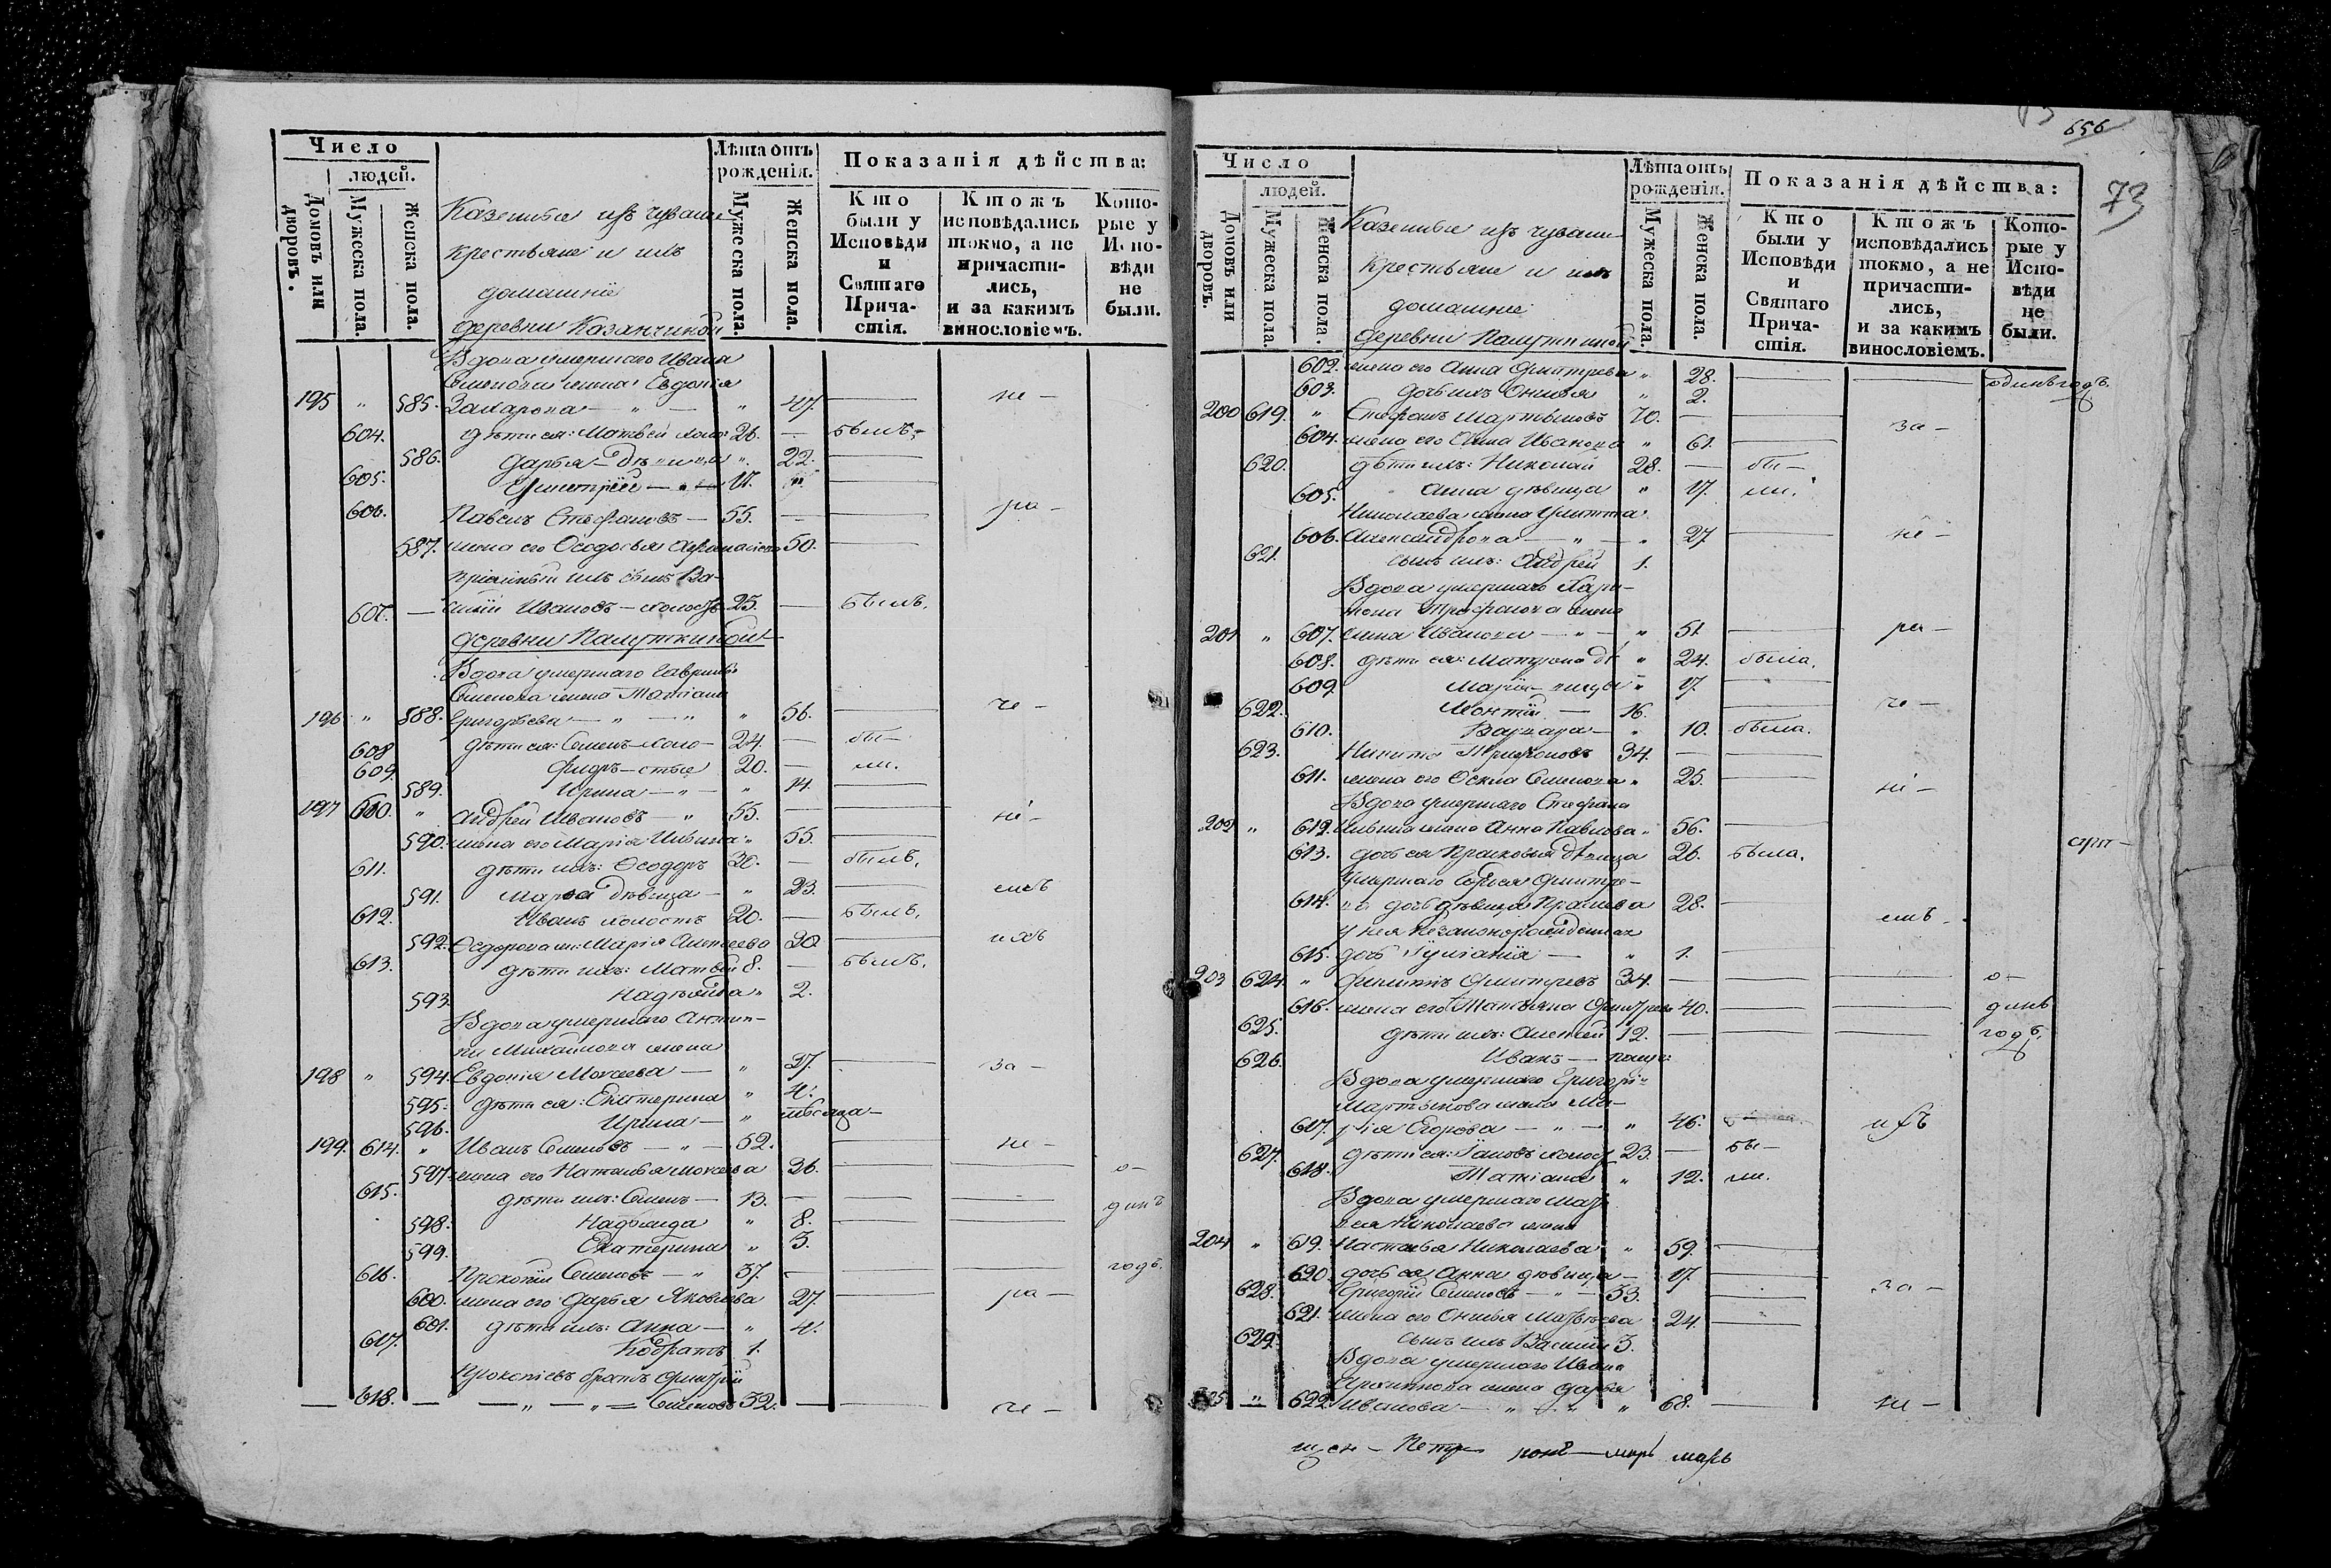 Число
людей.
Домовъ или дворовъ.
Мужеска пола.
Женска пола.
Казенные изъ чуваш
крестьяне и ихъ
домашніе
деревни Казанчиной
Лѣта отъ рожденія.
Мужеска пола.
Женска пола.
Показанія дѣйства:
Кто были у Исповѣди и Святаго Причастія.
Ктожъ исповѣдались токмо, а не причастились, и за какимъ винословіемъ.
Которые у Исповѣди не были.
Вдова умершаго Ивана
Семенова жена Евдокія
195 " 585. Захарова — " — " 47. — не —
604. дѣти ея: Матвей холо: 26. — былъ.
586. Дарья — дѣвица " 22. —
605. Димитрій — " — 17. " —
606. Павелъ Стефановъ — 55. — ра —
587. жена его Ѳеодосья Афанасіева 50. —
пріемный ихъ сынъ Ва-
607. — силій Ивановъ — холостъ 25. — былъ.
деревни Пашуткиной
Вдова умершаго Гаврила
Семенова жена Татіана
196 " 588. Григорьева — " — " " 56. — че —
608 дѣти ея: Семенъ — холо — 24. — бы —
609. Фидръ — стые 20. — ли.
589. Ирина — " — " 14. —
197 610. " Андрей Ивановъ — " 55. — не —
590. жена его Марія Ильина " 55. —
611. дѣти ихъ: Ѳеодоръ 30. — былъ.
591. Марѳа дѣвица — " 23. — емъ
612. Иванъ холостъ 20. — былъ.
592. Ѳедорова ж: Марія Алексеева 30 — ихъ
613. дѣти ихъ: Матвей 8. — былъ.
593. Надѣжда " 2.
Вдова умершаго Антип-
па Михайлова жена
198 " 594. Евдокія Моисеева — " 37. — за —
595. дѣти ея: Екатерина " 4.
596. Ирина — " мѣсяца —
199. 614. " Иванъ Семеновъ — " — 52. — не —
597. жена его Наталья Моисеева 36. — о —
615. дѣти ихъ: Семенъ — 13. — динъ
598. Надежда " 8. —
599. Екатерина " 5. —
616. Прокопій Семеновъ — " 37. — годъ.
600. жена его Дарья Яковлева 27. — ра —
601. дѣти ихъ: Анна — " 4.
617. Кодратъ 1.
Прокопіевъ братъ Димитрій
— 618. — — " — " — Семеновъ 32. — че —
656
73
Число
людей.
Домовъ или дворовъ.
Мужеска пола.
Женска пола.
Казенные изъ чуваш
крестьяне и ихъ
домашніе
деревни Пашуткиной
Лѣта отъ рожденія.
Мужеска пола.
Женска пола.
Показанія дѣйства:
Кто были у Исповѣди и Святаго Причастія.
Ктожъ исповѣдались токмо, а не причастились, и за какимъ винословіемъ.
Которые у Исповѣди не были.
602. жена его Анна Димитрева " 28. — — одинъ годъ.
603. дочь ихъ Онисья " 2.
200 619. " Стефанъ Мартыновъ 70. — за —
604. жена его Анна Иванова " 61. —
620. дѣти ихъ: Николай 28. — бы —
605. Анна дѣвица " 17. ли.
Николаева жена Улитта
606. Александрова — " — " 27 — не —
621. сынъ ихъ: Андрей 1.
Вдова умершаго Хари-
тона Трофимова жена
201 " 607. Анна Иванова — " — " 51 — ра —
608. дѣти ея: Матрона дѣ " 24. была.
609. Марія — вицы " 17. —
622. Леонтій — 16. — че —
610. Варвара — " 10. была.
623. Никита Трифоновъ 34. —
611. жена его Ѳекла Семенова " 25. — ні —
Вдова умершаго Стефана
202 " 612. Ильина жена Анна Павлова " 56. —
613. дочь ея Прасковья дѣвица 26. была.
умершаго Сергея Димитре-
614. ва дочь дѣвица Прасковья 28. — емъ —
у нея незаконорожденная
615. дочь Іуліанія — " 1. —
203 624. " Филиппъ Димитревъ 34. — — о —
616. жена его Татьяна Димитрева 40. — — динъ
625. дѣти ихъ: Алексей 12. — — годъ.
626. Иванъ — полуг:
Вдова умершаго Григорі-
Мартынова жена Ма-
617. рія Егорова — " — " 46. — ихъ
627. дѣти ея: Іаковъ холос 23. — бы —
618. Татіана " 12. ли.
Вдова умершаго Мат-
вея Николаева жена
204 " 619. Настасья Николаева " 59. —
620. дочь ея Анна дѣвица — 17. —
628. Григорій Семеновъ — " — 33. — за —
621. жена его Онисья Матвѣева 24. —
629. сынъ ихъ Василій 3.
Вдова умершаго Ивана
Архиппова жена Дарья
205 " 622. Иванова — " — " " 68. — не —
щен — Петръ